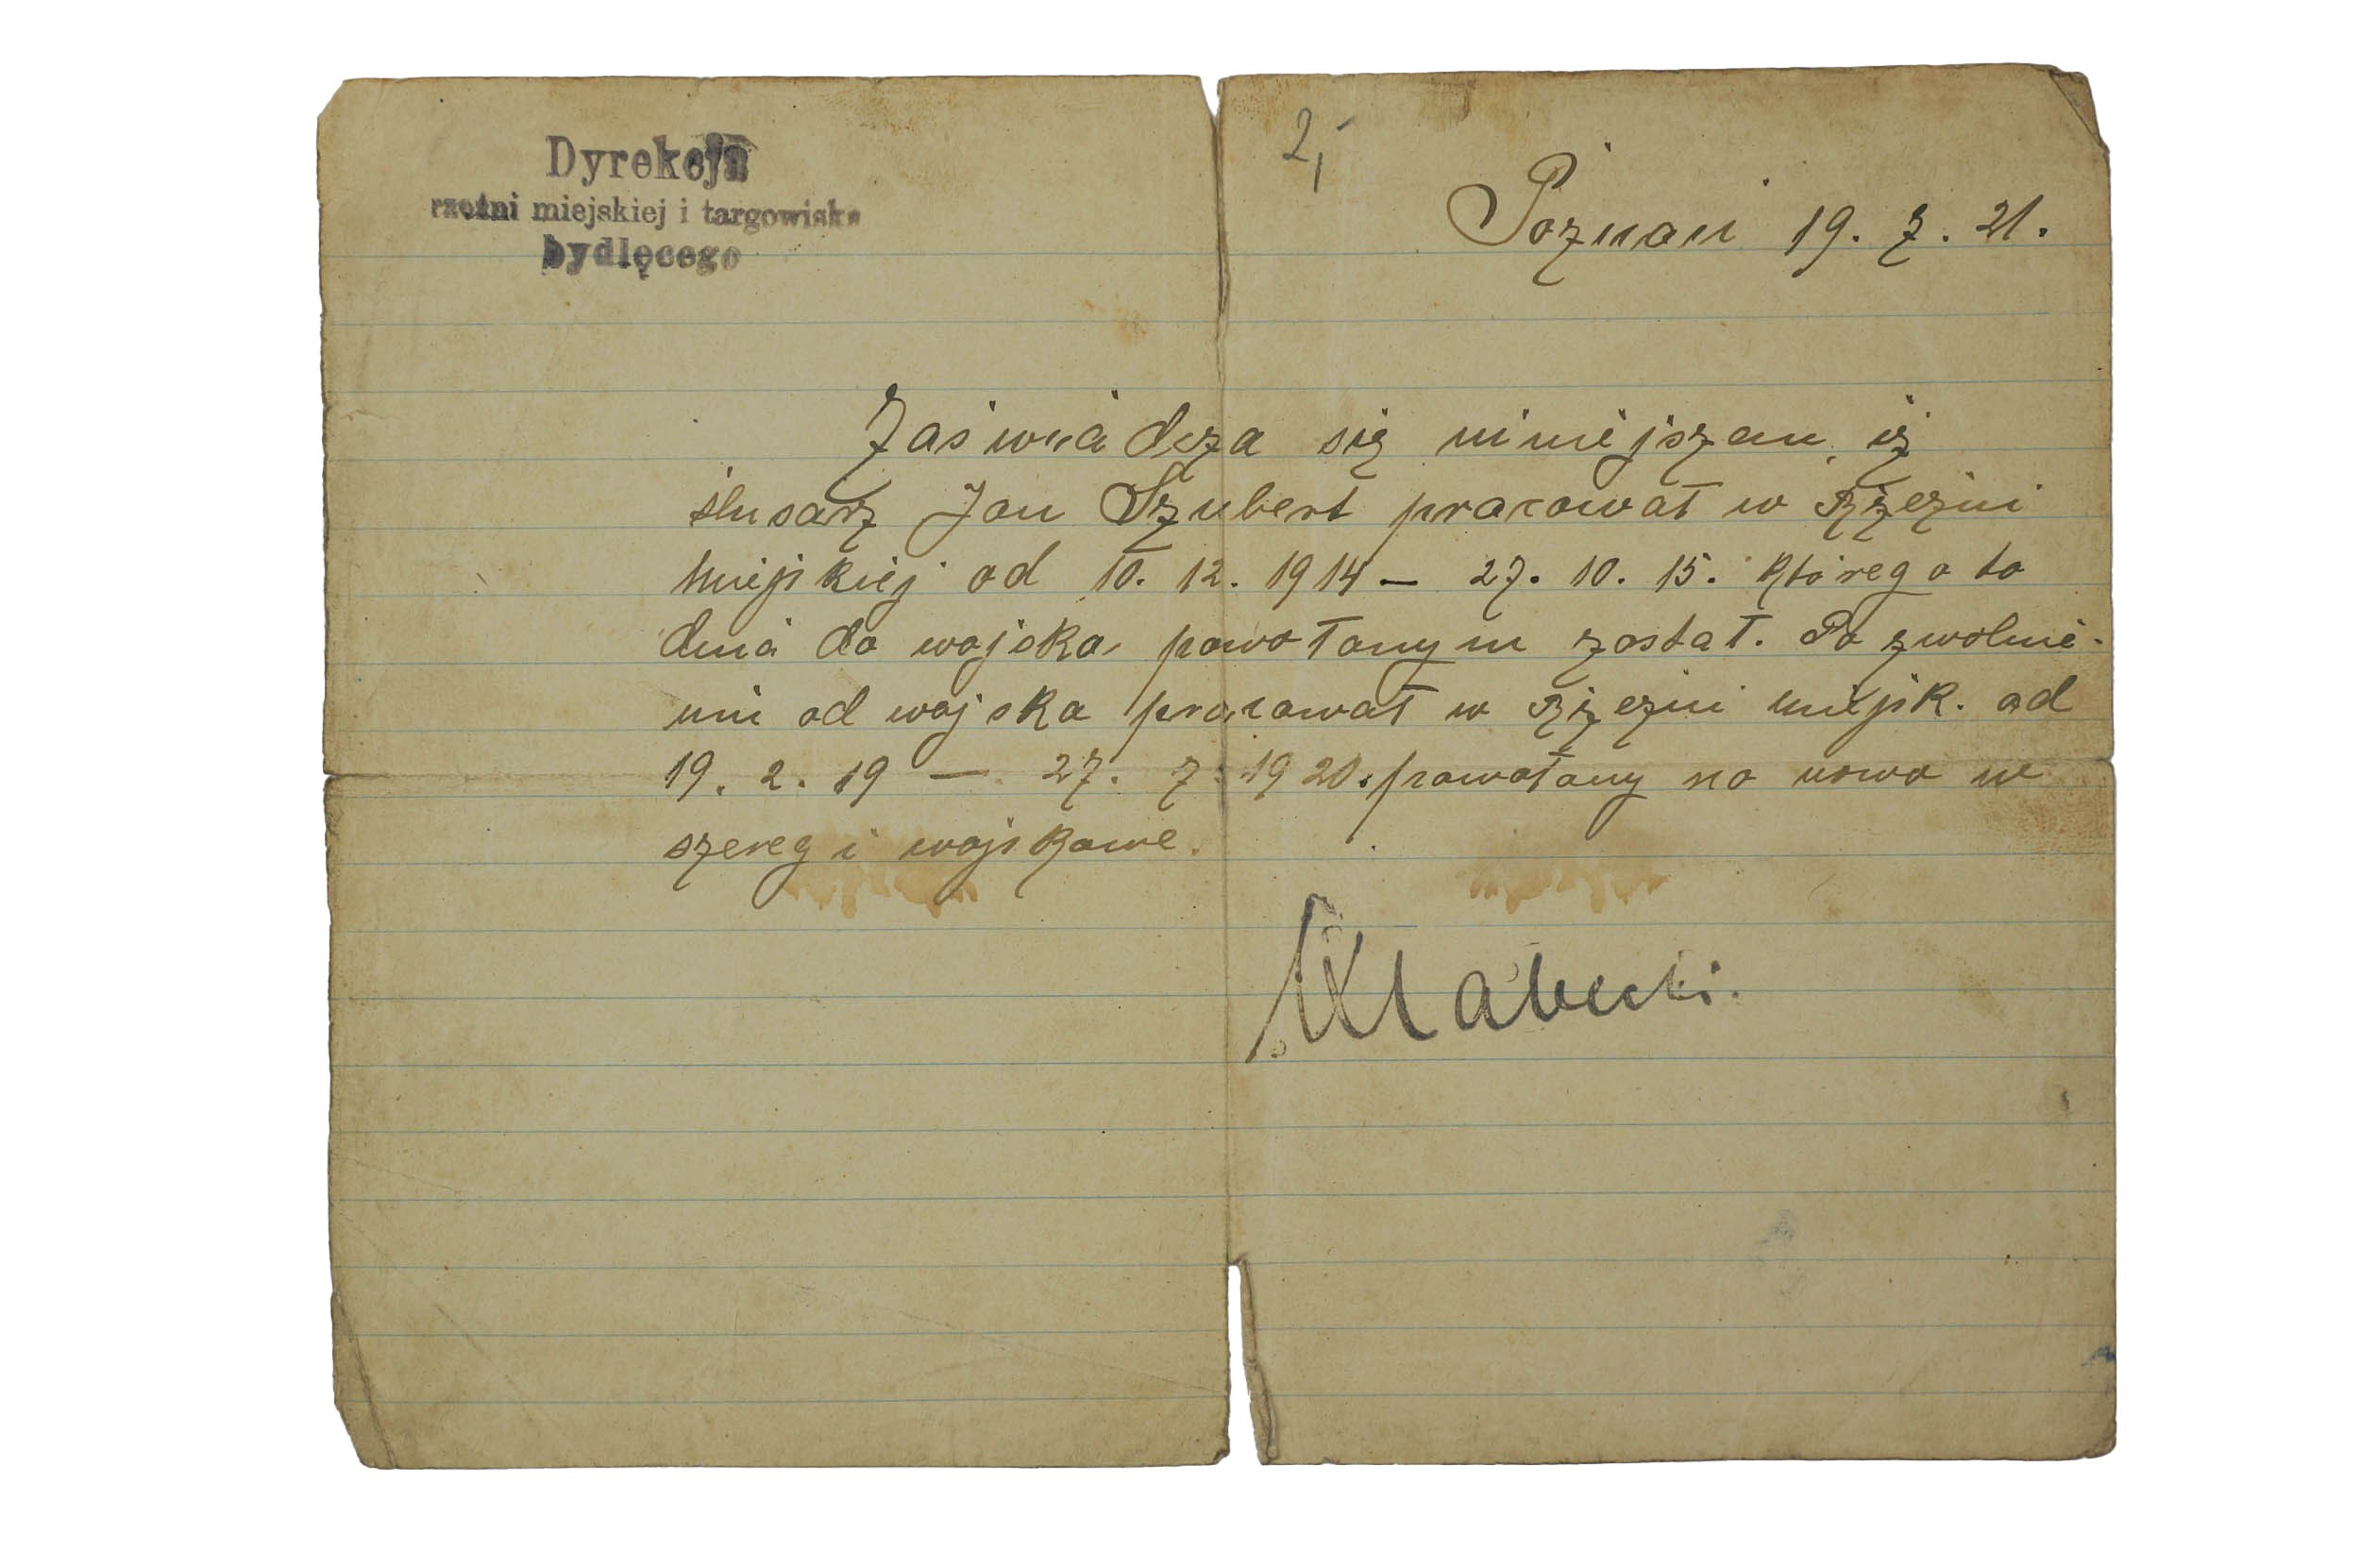 Dyrekcja
rzeźni miejskiej i targowiska
bydlęcego
2,-
Poznań 19. 7. 21.
Zaświadcza się niniejszem, iż
ślusarz Jan Szubert pracował w Rzeźni
miejskiej od 10. 12. 1914 – 27. 10. 15. którego to
dnia do wojska powołanym został. Po zwolnie-
niu od wojska pracował w Rzeźni miejsk. od
19. 2. 19 — 27. 7. 1920. powołany na nowo w
szeregi wojskowe.